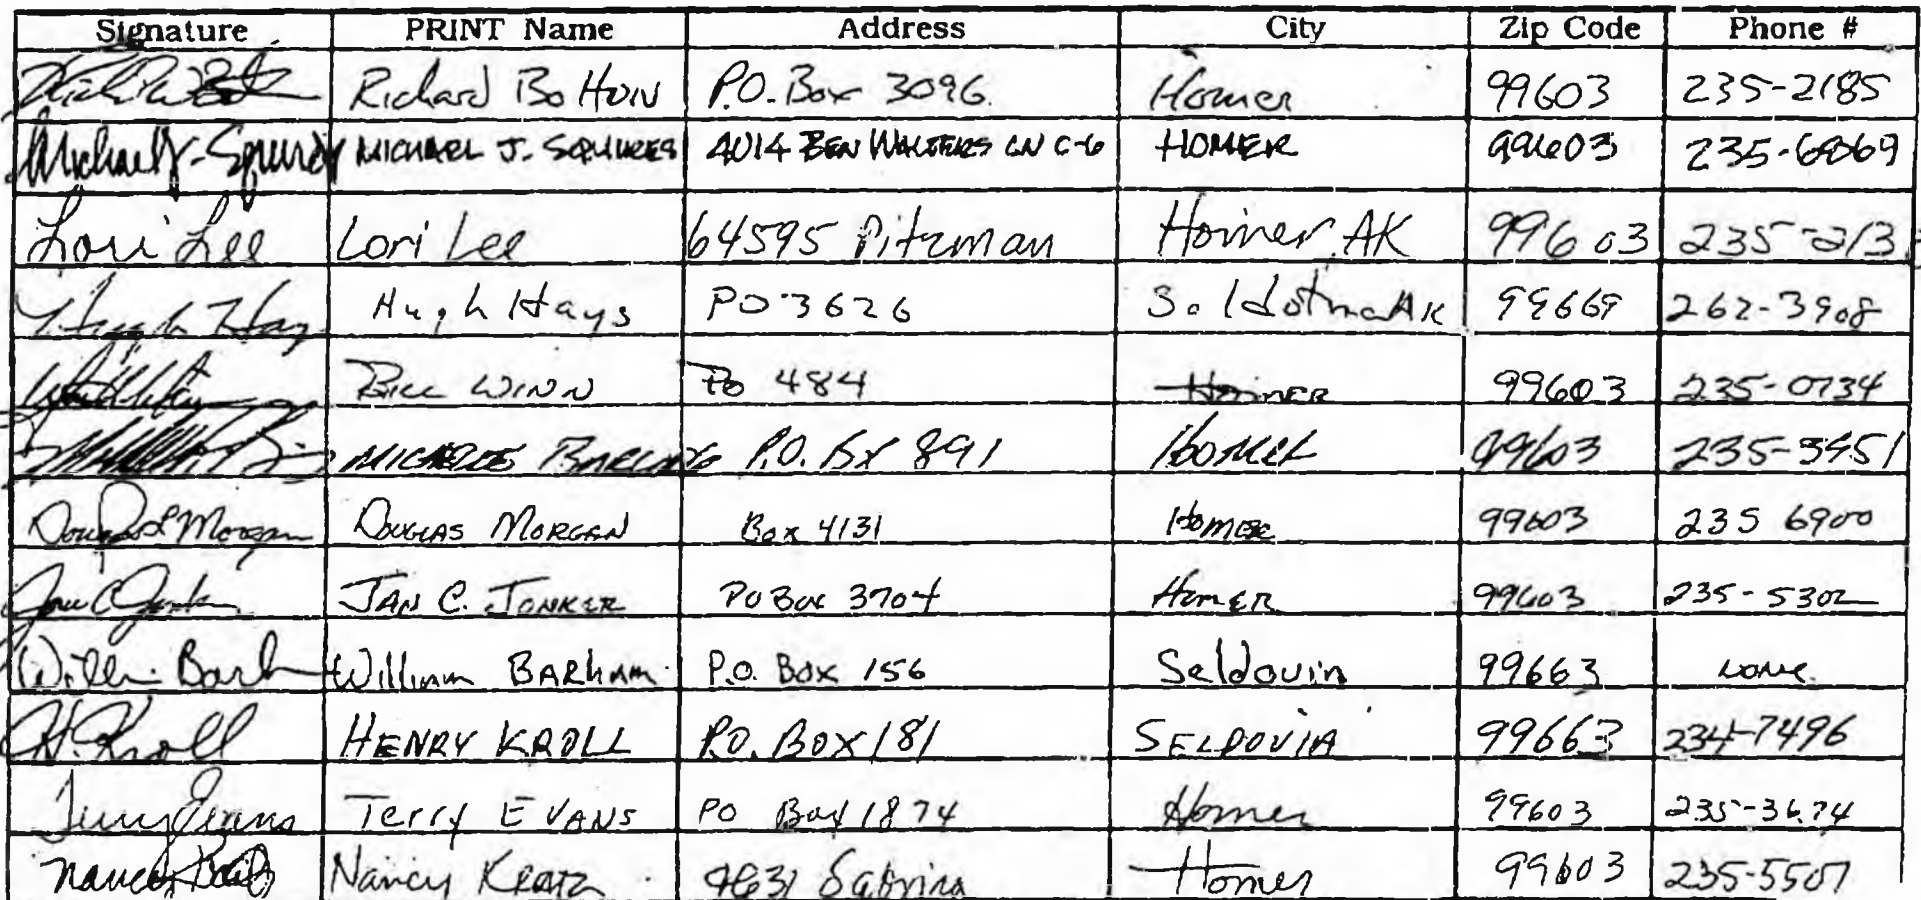 Signature PRINT Name Address City Zip Code Phone #
Richard P.O. Box 3096 Homer 99603 235-2185
Michael J. Squires MICHAEL J. SQUIRES 4014 BEN WALTERS LN C-6 HOMER 99603 235-6869
Lori Lee Lori Lee 64595 Pitzman Homer, AK 99603 235-213
Hugh Hays Hugh Hays PO 3626 Soldotna AK 99669 262-3908
BILL WINN PO 484 HOMER 99603 235-0734
P.O. BX 891 HOMER 99603 235-3951
Douglas L Morgan DOUGLAS MORGAN Box 4131 HOMER 99603 235 6900
Jan C Jonker JAN C. JONKER PO Box 3704 HOMER 99603 235-5302
William Barh William BARHAM P.O. Box 156 Seldovia 99663 none
H. Kroll HENRY KROLL P.O. BOX 181 SELDOVIA 99663 234-7496
Terry Evans Terry EVANS PO Box 1874 Homer 99603 235-3674
Nancy Nancy KRATZ 4631 Sabrina Homer 99603 235-5507